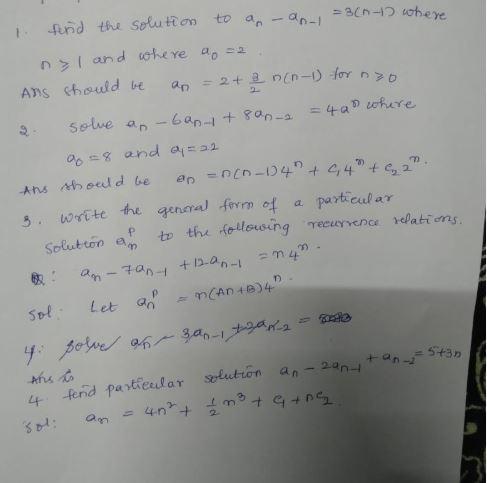 1. find the solution to aₙ - aₙ₋₁ = 3(n-1) where
n ≥ 1 and where a₀ = 2.
Ans should be aₙ = 2 + 3/2 n(n-1) for n ≥ 0
2. solve aₙ - 6aₙ₋₁ + 8aₙ₋₂ = 4aⁿ where
a₀ = 8 and a₁ = 22
Ans should be aₙ = n(n-1)4ⁿ + c₁4ⁿ + c₂2ⁿ.
3. write the general form of a particular
solution aₙᵖ to the following recurrence relations.
: aₙ - 7aₙ₋₁ + 12aₙ₋₁ = n4ⁿ.
sol: Let aₙᵖ = n(An+B)4ⁿ.
4. solve aₙ - 3aₙ₋₁ + 2aₙ₋₂ =
Ans
4. find particular solution aₙ - 2aₙ₋₁ + aₙ₋₂ = 5+3n
sol: aₙ = 4n² + 1/2 n³ + c₁ + nc₂.